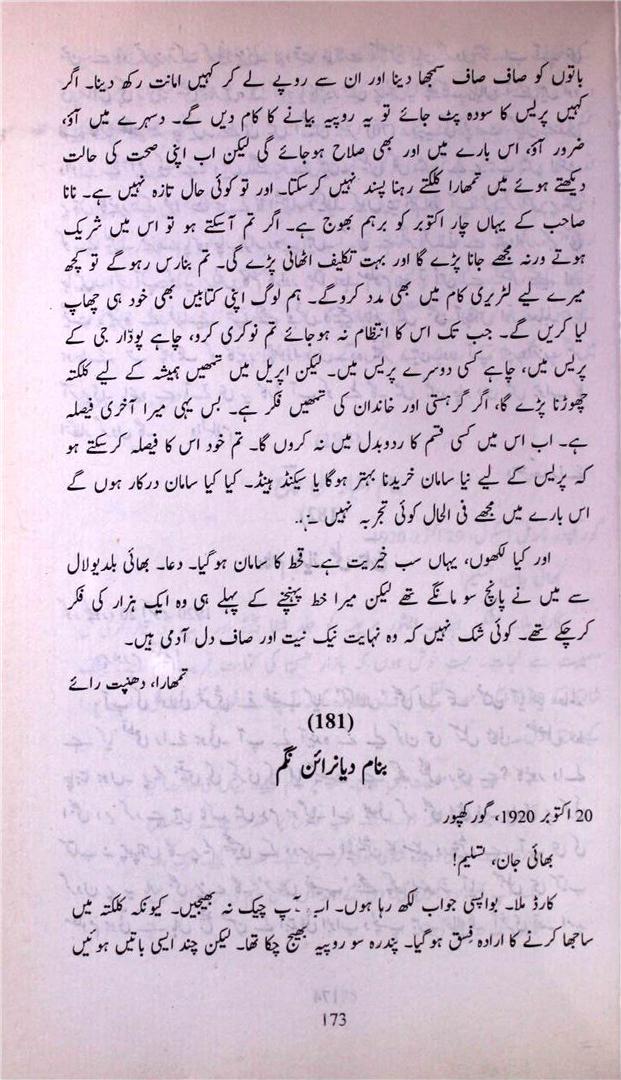 باتوں کو صاف صاف سمجھا دینا اور ان سے روپے لے کر کہیں امانت رکھ دینا۔ اگر
کہیں پریس کا سودہ پٹ جائے تو یہ روپیہ بیانے کا کام دیں گے۔ دسہرے میں آؤ،
ضرور آؤ، اس بارے میں اور بھی صلاح ہوجائے گی لیکن اب اپنی صحت کی حالت
دیکھتے ہوئے میں تمھارا کلکتے رہنا پسند نہیں کرسکتا۔ اور تو کوئی حال تازہ نہیں ہے۔ نانا
صاحب کے یہاں چار اکتوبر کو برہم بھوج ہے۔ اگر تم آسکتے ہو تو اس میں شریک
ہوتے ورنہ مجھے جانا پڑے گا اور بہت تکلیف اٹھانی پڑے گی۔ تم بنارس رہوگے تو کچھ
میرے لیے لٹریری کام میں بھی مدد کروگے۔ ہم لوگ اپنی کتابیں بھی خود ہی چھاپ
لیا کریں گے۔ جب تک اس کا انتظام نہ ہوجائے تم نوکری کرو، چاہے پوڈار جی کے
پریس میں، چاہے کسی دوسرے پریس میں۔ لیکن اپریل میں تمھیں ہمیشہ کے لیے کلکتہ
چھوڑنا پڑے گا، اگر گرہستی اور خاندان کی تمھیں فکر ہے۔ بس یہی میرا آخری فیصلہ
ہے۔ اب اس میں کسی قسم کا ردوبدل میں نہ کروں گا۔ تم خود اس کا فیصلہ کرسکتے ہو
کہ پریس کے لیے نیا سامان خریدنا بہتر ہوگا یا سیکنڈ ہینڈ۔ کیا کیا سامان درکار ہوں گے
اس بارے میں مجھے فی الحال کوئی تجربہ نہیں ہے۔
اور کیا لکھوں، یہاں سب خیریت ہے۔ قحط کا سامان ہوگیا۔ دعا۔ بھائی بلدیولال
سے میں نے پانچ سو مانگے تھے لیکن میرا خط پہنچنے کے پہلے ہی وہ ایک ہزار کی فکر
کرچکے تھے۔ کوئی شک نہیں کہ وہ نہایت نیک نیت اور صاف دل آدمی ہیں۔
تمھارا، دھنپت رائے
(181)
بنام دیانرائن نگم
20 اکتوبر 1920، گورکھپور
بھائی جان، تسلیم!
کارڈ ملا۔ بواپسی جواب لکھ رہا ہوں۔ اب آپ چیک نہ بھیجیں۔ کیونکہ کلکتہ میں
ساجھا کرنے کا ارادہ فسق ہوگیا۔ پندرہ سو روپیہ بھیج چکا تھا۔ لیکن چند ایسی باتیں ہوئیں
173